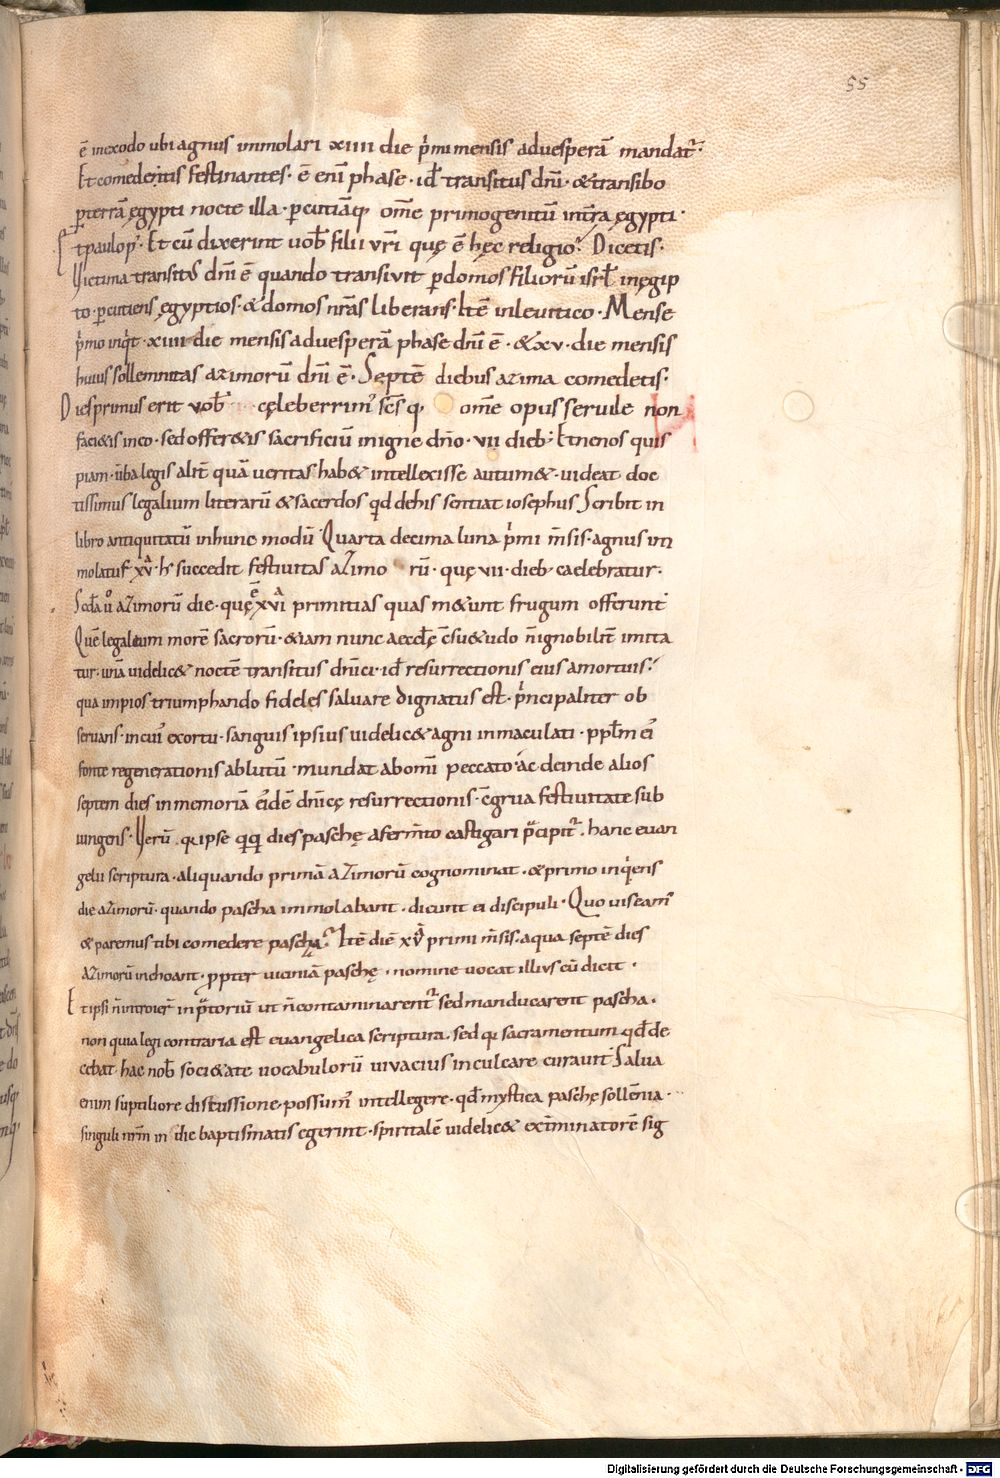 55
ē inexodo ubi agnus immolari xiiii die p̄mi mensis aduesperā mandat᷑·
Et comedentis festinantes· ē enī phase· id̄ transitus dn̄i· & transibo
p̱terrā ęgypti nocte illa· p̱cutiāq· om̄e primogenitū int̄ra ęgypti·
Et paulo p᷒· Et cū dixerint uob̄ filii vr̄i quę ē hęc religio? Dicetis·
Victima transitus dn̄i ē quando transivit p̱domos filiorū isrl̄ inęgip
to· p̱cutiens ęgyptios· & domos nr̄as liberans· Itē inleuitico· Mense
p̄mo inq̄t· xiiii die mensis aduesperā phase dn̄i ē· & xv· die mensis
huius sollemnitas azimorū dn̄i ē· Septē diebus azima comedetis·
Dies primus erit vob̄ cęleberrim᷒ sc̄s q· om̄e opus seruile non
faci&is ineo· sed offer&is sacrificiū inigne dn̄o· vii dieb᷒ Et nenos quis
piam· ūba legis alit̄ quā ueritas hab& intellexisse autum&· uideat doc
tissimus legalium literarū & sacerdos qd dehis sentiat iosephus Scribit in
libro antiquitatū inhunc modū· Quarta decima luna p̄mi m̄sis· agnus im
molatur xvᵃ· h᷒ succedit festiuitas azimo rū· quę vii· dieb· caelebratur·
Scd̄a ū azimorū die· quę ē xviᵃ primitias quas m&unt frugum offerunt
Quē legaleum morē sacrorū· &iam nunc aeccl̄ę c̄su&udo n̄ignobilit̄ imita
tur· unā uidelic& noctē transitus dn̄ici· id̄ resurrectionis eius amortuis·
qua impios triumphando fideles saluare dignatus est· p̄ncipaliter ob
seruans· incui᷒ exortu· sanguis ipsius uidelic& agni inmaculati· ppl̄m ei᷒
fonte regenerationis ablutū· mundat abom̄i peccato· ac deinde alios
septem dies inmemoriā eidē dn̄icę resurrectionis· c̄grua festiuitate sub
iungens· Verū q ipse qq dies paschę aferm̄to castigari p̄cipit᷑· hanc euan
gelii scriptura· aliquando primā azimorū cognominat· & primo inq̄ens
die azimorū· quando pascha immolabant· dicunt ei discipuli· Quo uis eam᷒
& paremus tibi comedere pascha? Itē diē xvᵃ primi m̄sis· aqua septē dies
azimorū inchoant· p̱pter uiciniā paschę· nomine uocat illius cū dicit·
Et ipsi n̄introier̄ inp̄toriū ut n̄contaminarent᷑ sed manducarent pascha·
non quia legi contraria est euangelica scriptura· sed q sacramentum qd̄ de
cebat· hac nob̄ soci&ate uocabulorū uiuacius inculcare curauit Salua
enim suptiliore discussione possum᷒ intellegere· qd̄ mystica paschę sollēnia·
singuli nr̄m in die baptismatis egerint· spiritalē uidelic& ext̄minatorē sig
Digitalisierung gefördert durch die Deutsche Forschungsgemeinschaft - DFG